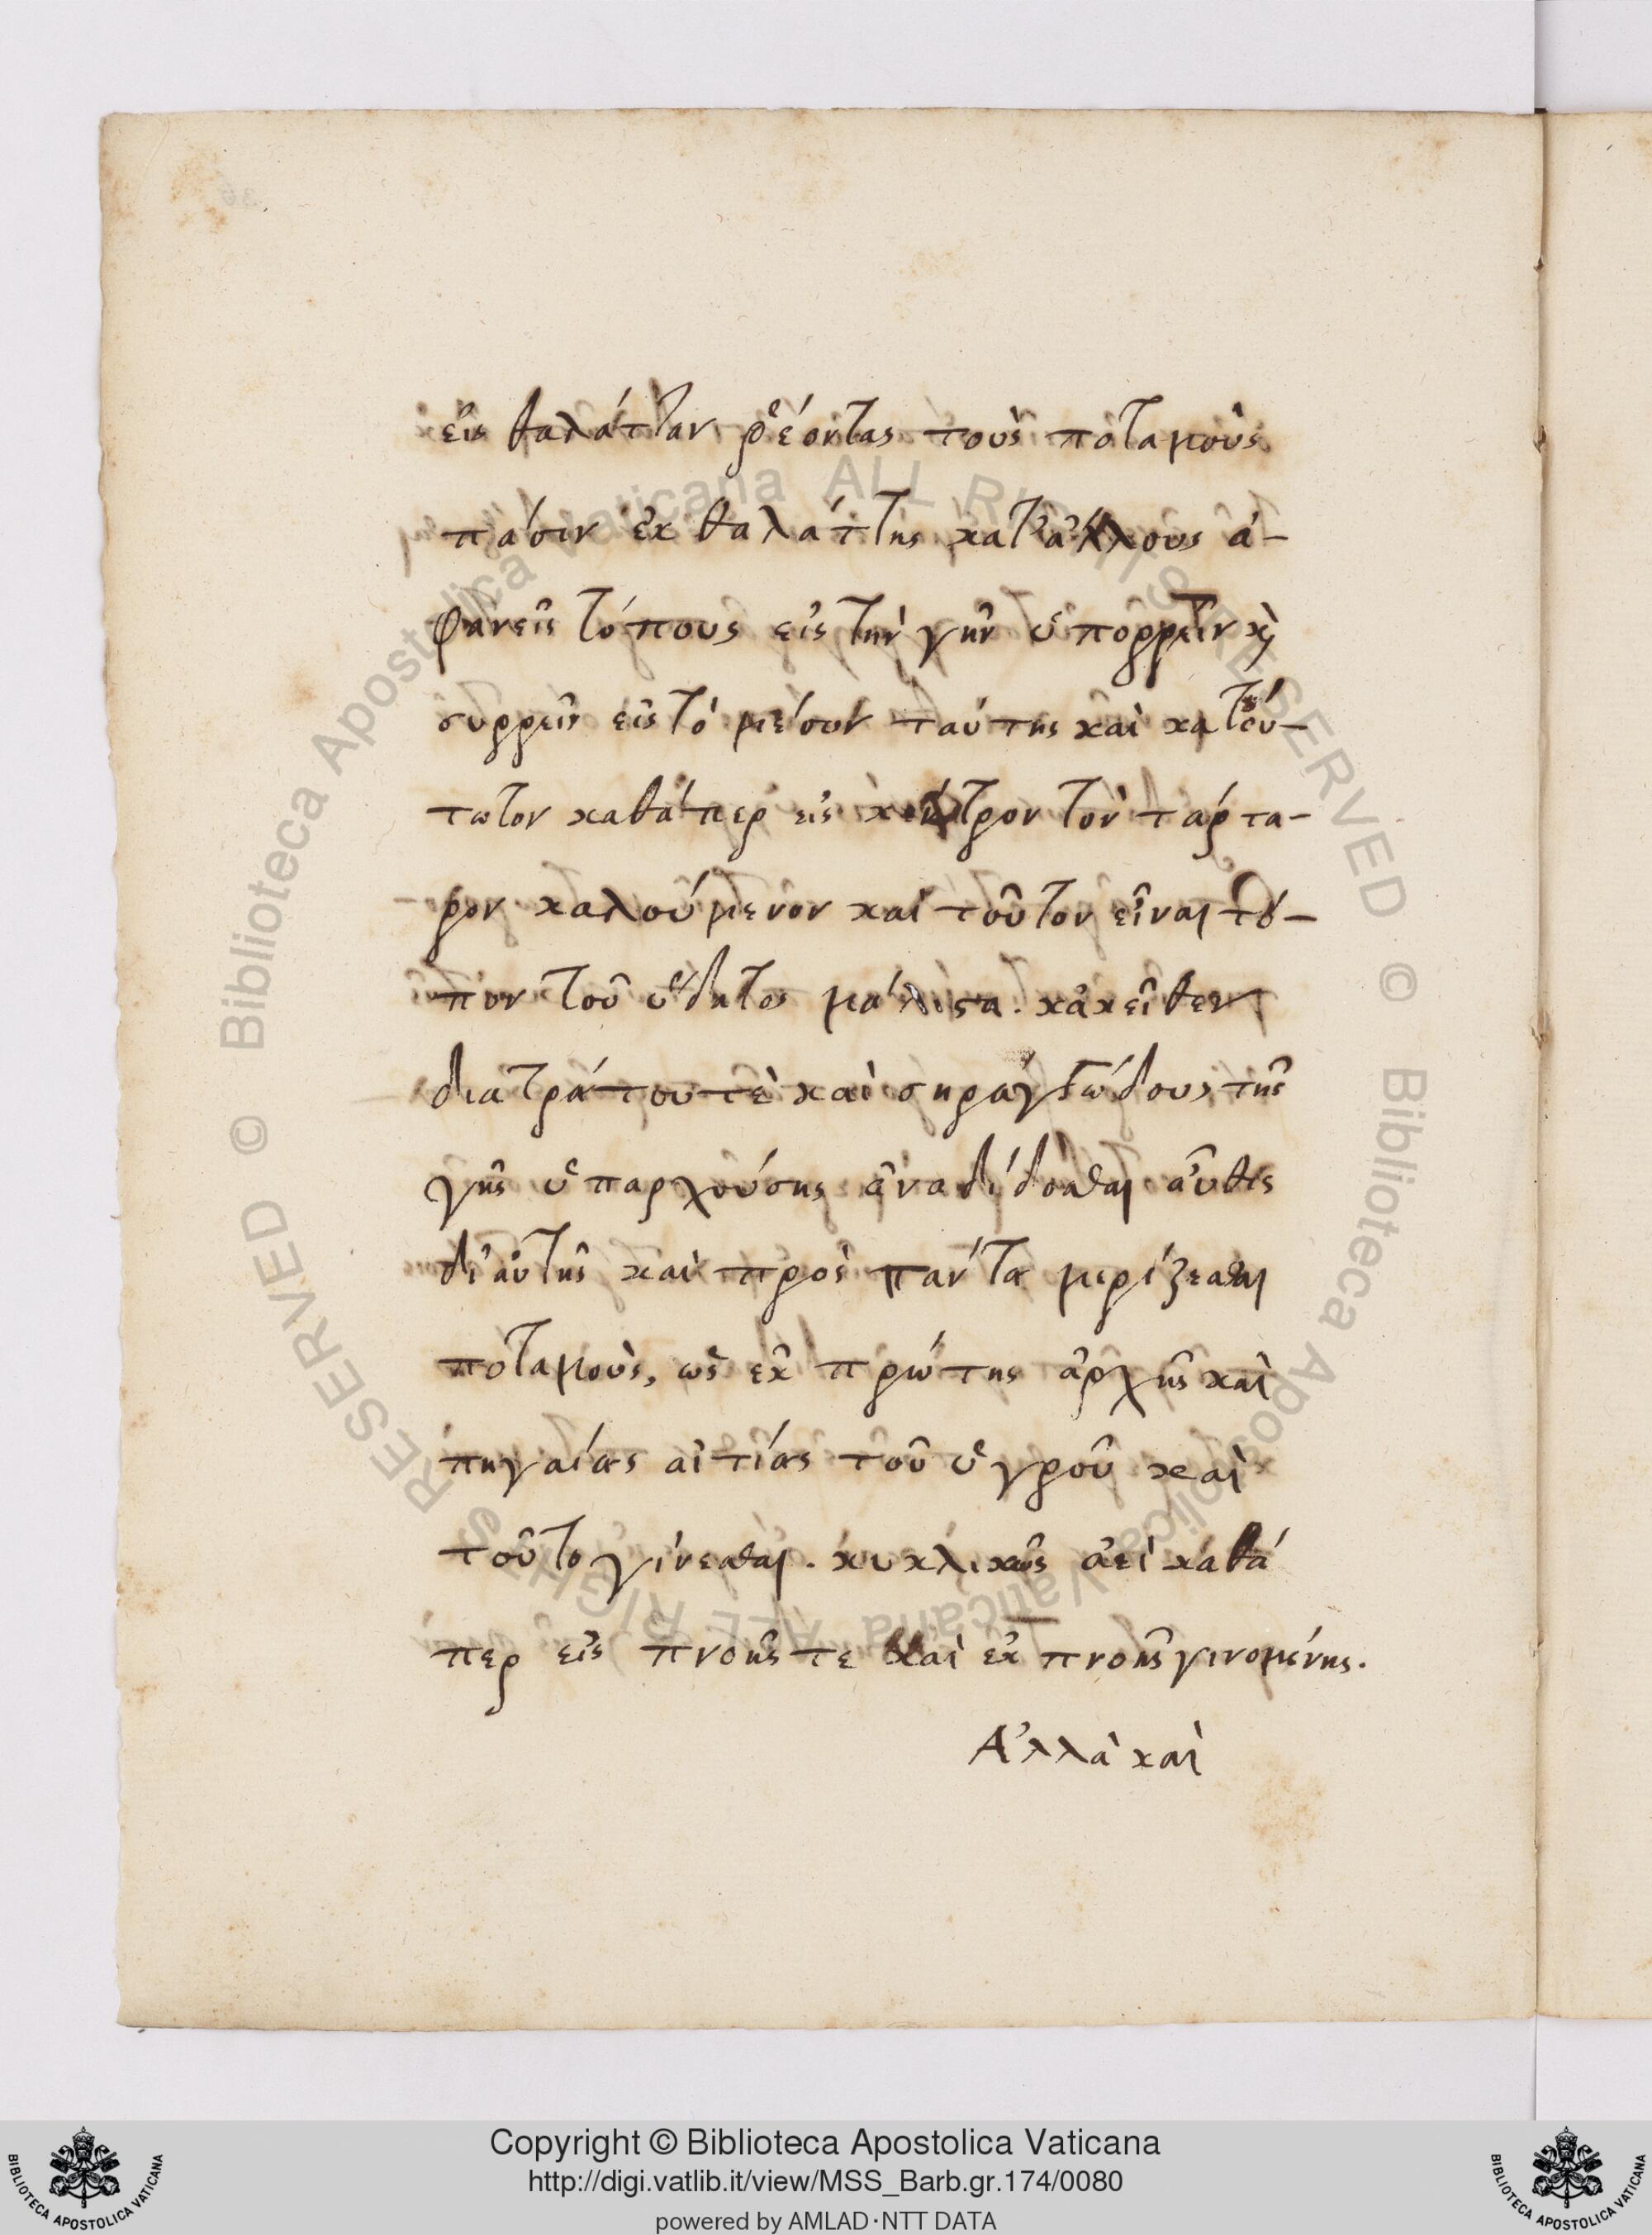 εἰς θαλάτταν ῥέοντας τοὺς ποταμοὺς
πάσιν ἐκ θαλάττης κατ' ἄλλους ἀ-
φανεῖς τόπους εἰς τὴν γῆν ὑπορρεῖν κὶ
συρρεῖν εἰς τὸ μέσον ταύτης καὶ κατώ-
τατον καθάπερ εἰς κέντρον τὸν τάρτα-
ρον καλούμενον καὶ τοῦτον εἶναι τό-
πον τοῦ ὕδατος μάλιστα. κἀκεῖθεν
διατράτου τὲ καὶ σηραγγώδους τῆς
γῆς ὑπαρχούσης ἀναδίδοσθαι αὖθις
δι' αὐτῆς καὶ πρὸς πάντα μερίζεσθαι
ποταμοὺς, ὡς ἐκ πρώτης ἀρχῆς καὶ
πηγαίας αἰτίας τοῦ ὑγροῦ καὶ
τοῦτο γίνεσθαι. κυκλικῶς ἀεὶ καθά
περ εἰς πνοῆς τε καὶ ἐκ πνοῆς γινομένης.
Ἀλλὰ καὶ
Copyright © Biblioteca Apostolica Vaticana
http://digi.vatlib.it/view/MSS_Barb.gr.174/0080
powered by AMLAD·NTT DATA
BIBLIOTECA APOSTOLICA VATICANA
BIBLIOTECA APOSTOLICA VATICANA
© Biblioteca Apostolica Vaticana ALL RIGHTS RESERVED
© Biblioteca Apostolica Vaticana ALL RIGHTS RESERVED